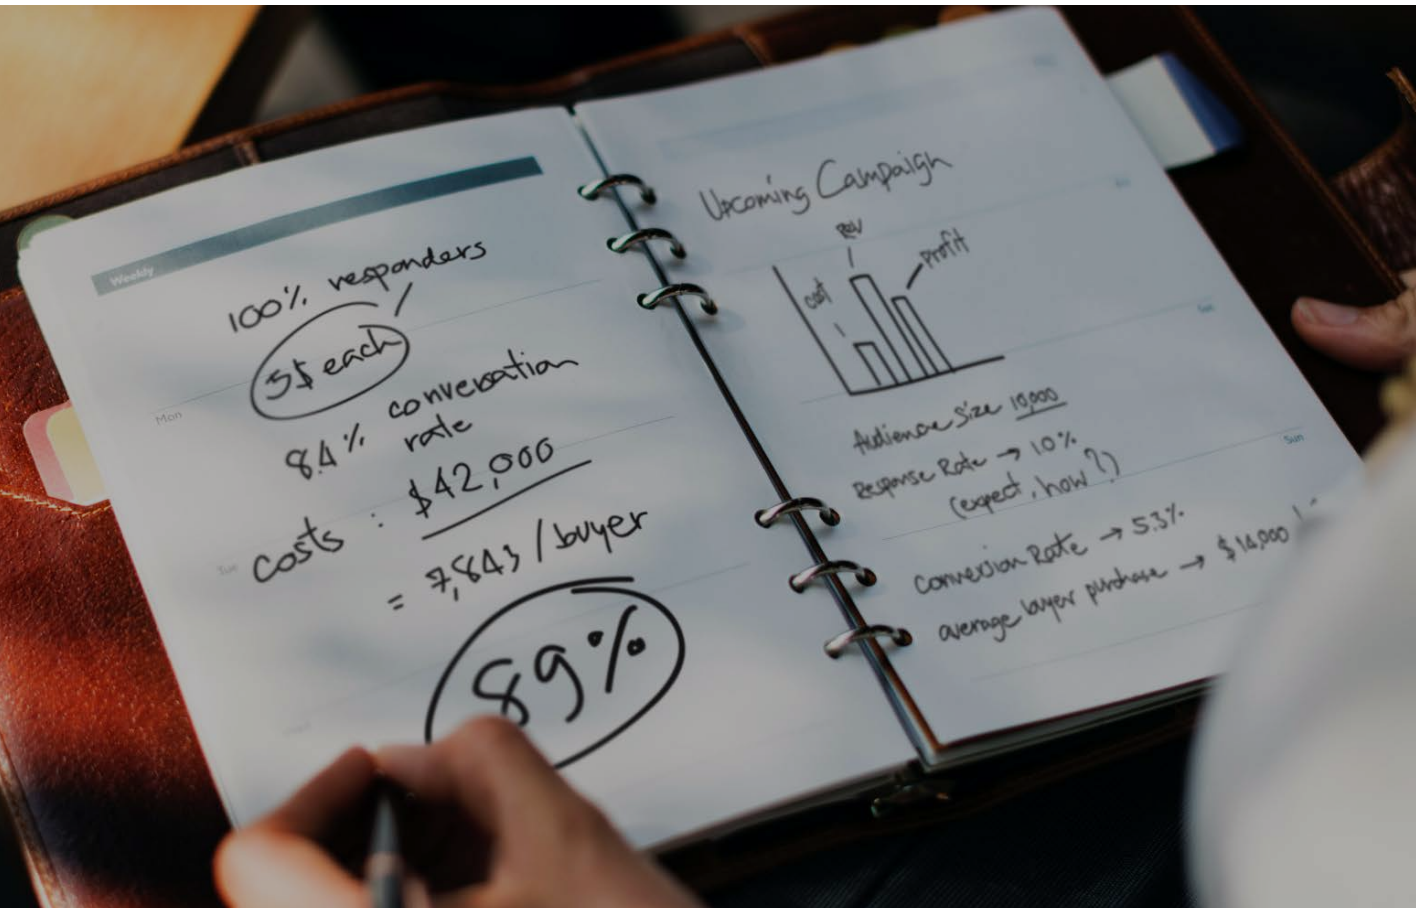 Weekly
100% responders
5$ each
Mon
8.4% conversation
rate
Tue
costs : $42,000
= 7,843 / buyer
89%
Upcoming Campaign
Rev
Profit
cost
Audience Size 10,000
Response Rate → 10%
(expect, how?)
Sun
Conversion Rate → 5.3%
average buyer purchase → $14,000